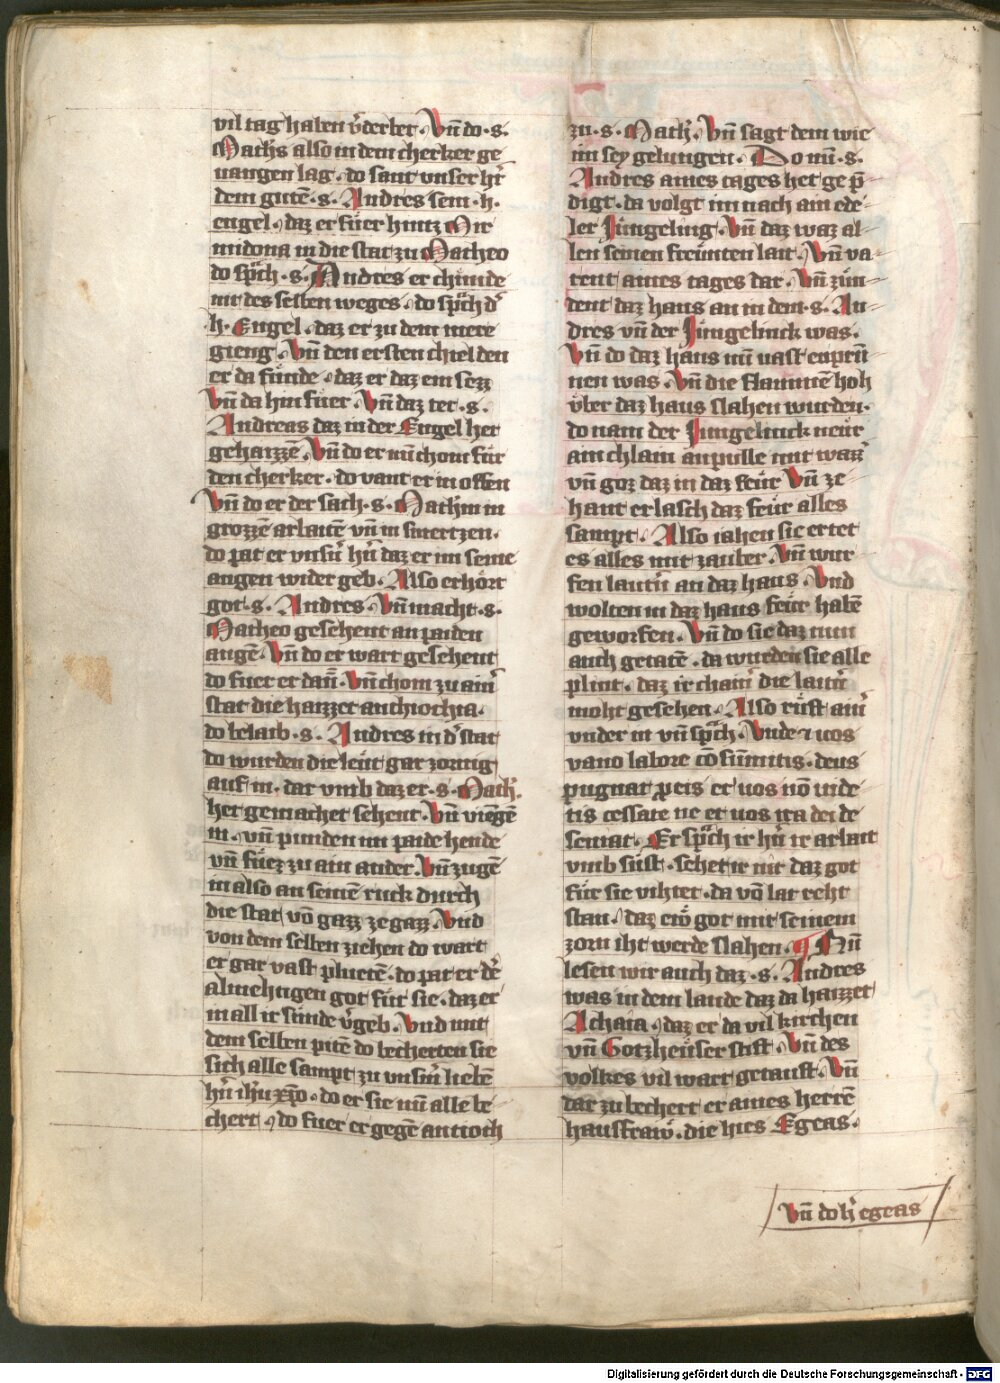 vil tag haben v̓derbet. Vn̄ do .s.
Math̓s also in dem cherker ge
uangen lag. do sant vnser hr̓
dem gutē .s. Andres sein .h.
engel. daz er füer hintz Mir
midona in die stat zu Matheo
do sp̄ch .s. Andres er chunde
nit des selben weges. do sp̄ch d̓
.h. Engel. daz er zu dem mere
gieng. Vn̄ den ersten chiel den
er da fünde. daz er daz ein sezz
Vn̄ da hin füer. Vn̄ daz tet .s.
Andreas daz in der Engel het
gehaizzē. Vn̄ do er nu chom für
den cherker. do vant er in offen
Vn̄ do er der sach .s. Math̓m in
grozzē arbaitē vn̄ in smertzen.
do pat er vnsn̓ hn̓ daz er im seine
augen wider geb. Also erhört
got .s. Andres. Vn̄ macht .s.
Matheo gesehent an paiden
augē. Vn̄ do er wart gesehent
do fuer er dan̄. Vn̄ chom zu ain̓
stat die haizzet anthiochia.
do belaib .s. Andres in d̓ stat
do wurden die leüt gar zornig
auf in. dar vmb daz er .s. Math̓.
het gemachet sehent. Vn̄ viēgen
in. vn̄ punden im paide hende
vn̄ füez zu ain ander. Vn̄ zugē
in also an seinē ruck durch
die stat vō gazz ze gazz. Vnd
von dem selben ziehen do wart
er gar vast pluetē. do pat er dē
almehtigen got für sie. daz er
in all ir sünde v̓geb. Vnd mit
dem selben pitē do becherten sie
sich alle sampt zu vnsm̓ liebē
hn̓ ih̓u xp̄o. do er sie nu alle be
chert. do fuer er gegē antioch
zu .s. Math̓. Vn̄ sagt dem wie
im sey gelungen. Do nu .s.
Andres aines tages het ge p̄
digt. da volgt im nach ain ede
ler Jüngeling. Vn̄ daz waz al
len seinen freünten lait. Vn̄ va
rent aines tages dar. Vn̄ zün
dent daz haus an in dem .s. An
dres vn̄ der Jüngelinck was.
Vn̄ do daz haus nu vast enprū
nen was. Vn̄ die flammē hoh
vber daz haus slahen wurden.
do nam der Jungelinck neür
ain chlain anpulle mit wazz̓
vn̄ goz daz in daz feür Vn̄ ze
hant erlasch daz feür alles
sampt. Also iahen sie er tet
es alles mit zauber. Vn̄ wur
fen laitn̓ an daz haus. Vnd
wolten in daz haus feür habē
geworfen. Vn̄ do sie daz nun
auch getatē. da wurden sie alle
plint. daz ir chain̓ die laitn̓
moht gesehen. Also rüft ain̓
vnder in vn̄ sp̄ch. Vnde ⁊ uos
vano labore cō sūmitis. deus
pugnat p̱ eis et uos nō vide
tis cessate ne et uos ira dei de
seuiat. Er sp̄ch ir hn̓ ir arbait
vmb süst. sehet ir nit daz got
für sie vihtet. da vō lat reht
stan. daz ew̓ got mit seinem
zorn iht werde slahen. ¶ Nu
lesen wir auch daz .s. Andres
was in dem lande daz da haizzet
Achaia. daz er da vil kirchen
vn̄ Gotzheüser stift. Vn̄ des
volkes vil wart getauft. Vn̄
dar zu bechert er aines herrē
hausfraw. die hies Egeas.
Vn̄ do h̓ egeas
Digitalisierung gefördert durch die Deutsche Forschungsgemeinschaft - DFG